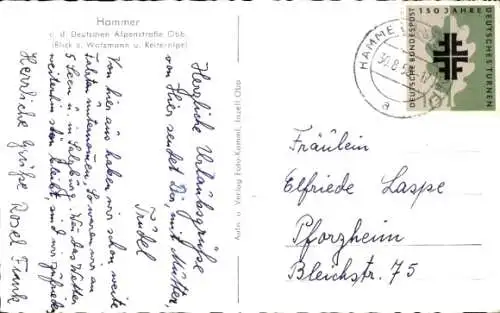 Hammer
a. d. Deutschen Alpenstraße Obb.
(Blick z. Watzmann u. Reiteralpe)
Herzliche Urlaubsgrüße
von Hier sendet Dir, mit Mutter,
Trudel
Von hier aus haben wir schon weite
Fahrten unternommen. So waren wir an
5 Seen u. in Salzburg. Wenn das Wetter
weiterhin schön bleibt, sind wir zufrieden
Herrliche Grüße Rosel Frank
Aufn. u. Verlag Foto-Kammel, Inzell Obb.
HAMMER
30.8.58
a
150 JAHRE
DEUTSCHES TURNEN
DEUTSCHE BUNDESPOST
10
Fräulein
Elfriede Laspe
Pforzheim
Bleichstr. 75